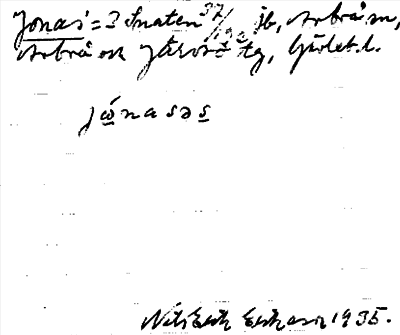 Jonas = 3 Snaten 37/192 jb, Arbrå sn,
Arbrå och Järvsö tg, Gävleb. l.
jónasəs
Nils Erik Erikson 1935.